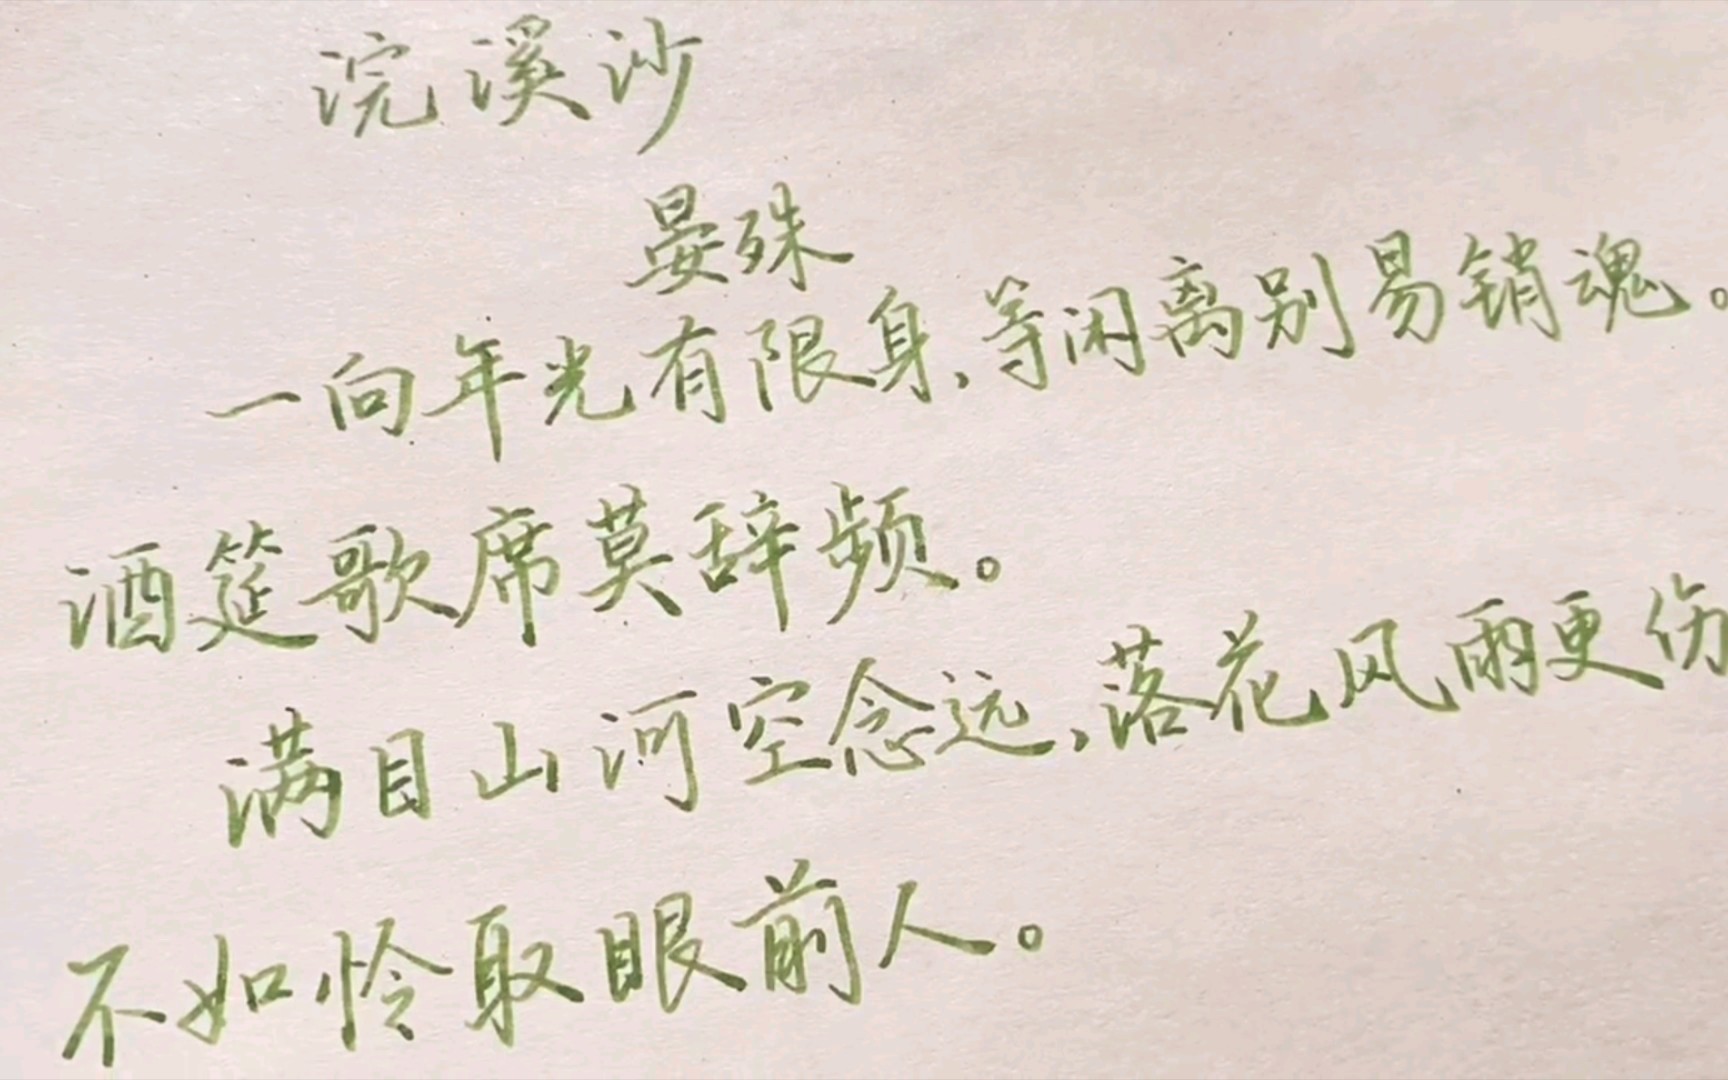 浣溪沙
晏殊
一向年光有限身,等闲离别易销魂。
酒筵歌席莫辞频。
满目山河空念远,落花风雨更伤
不如怜取眼前人。